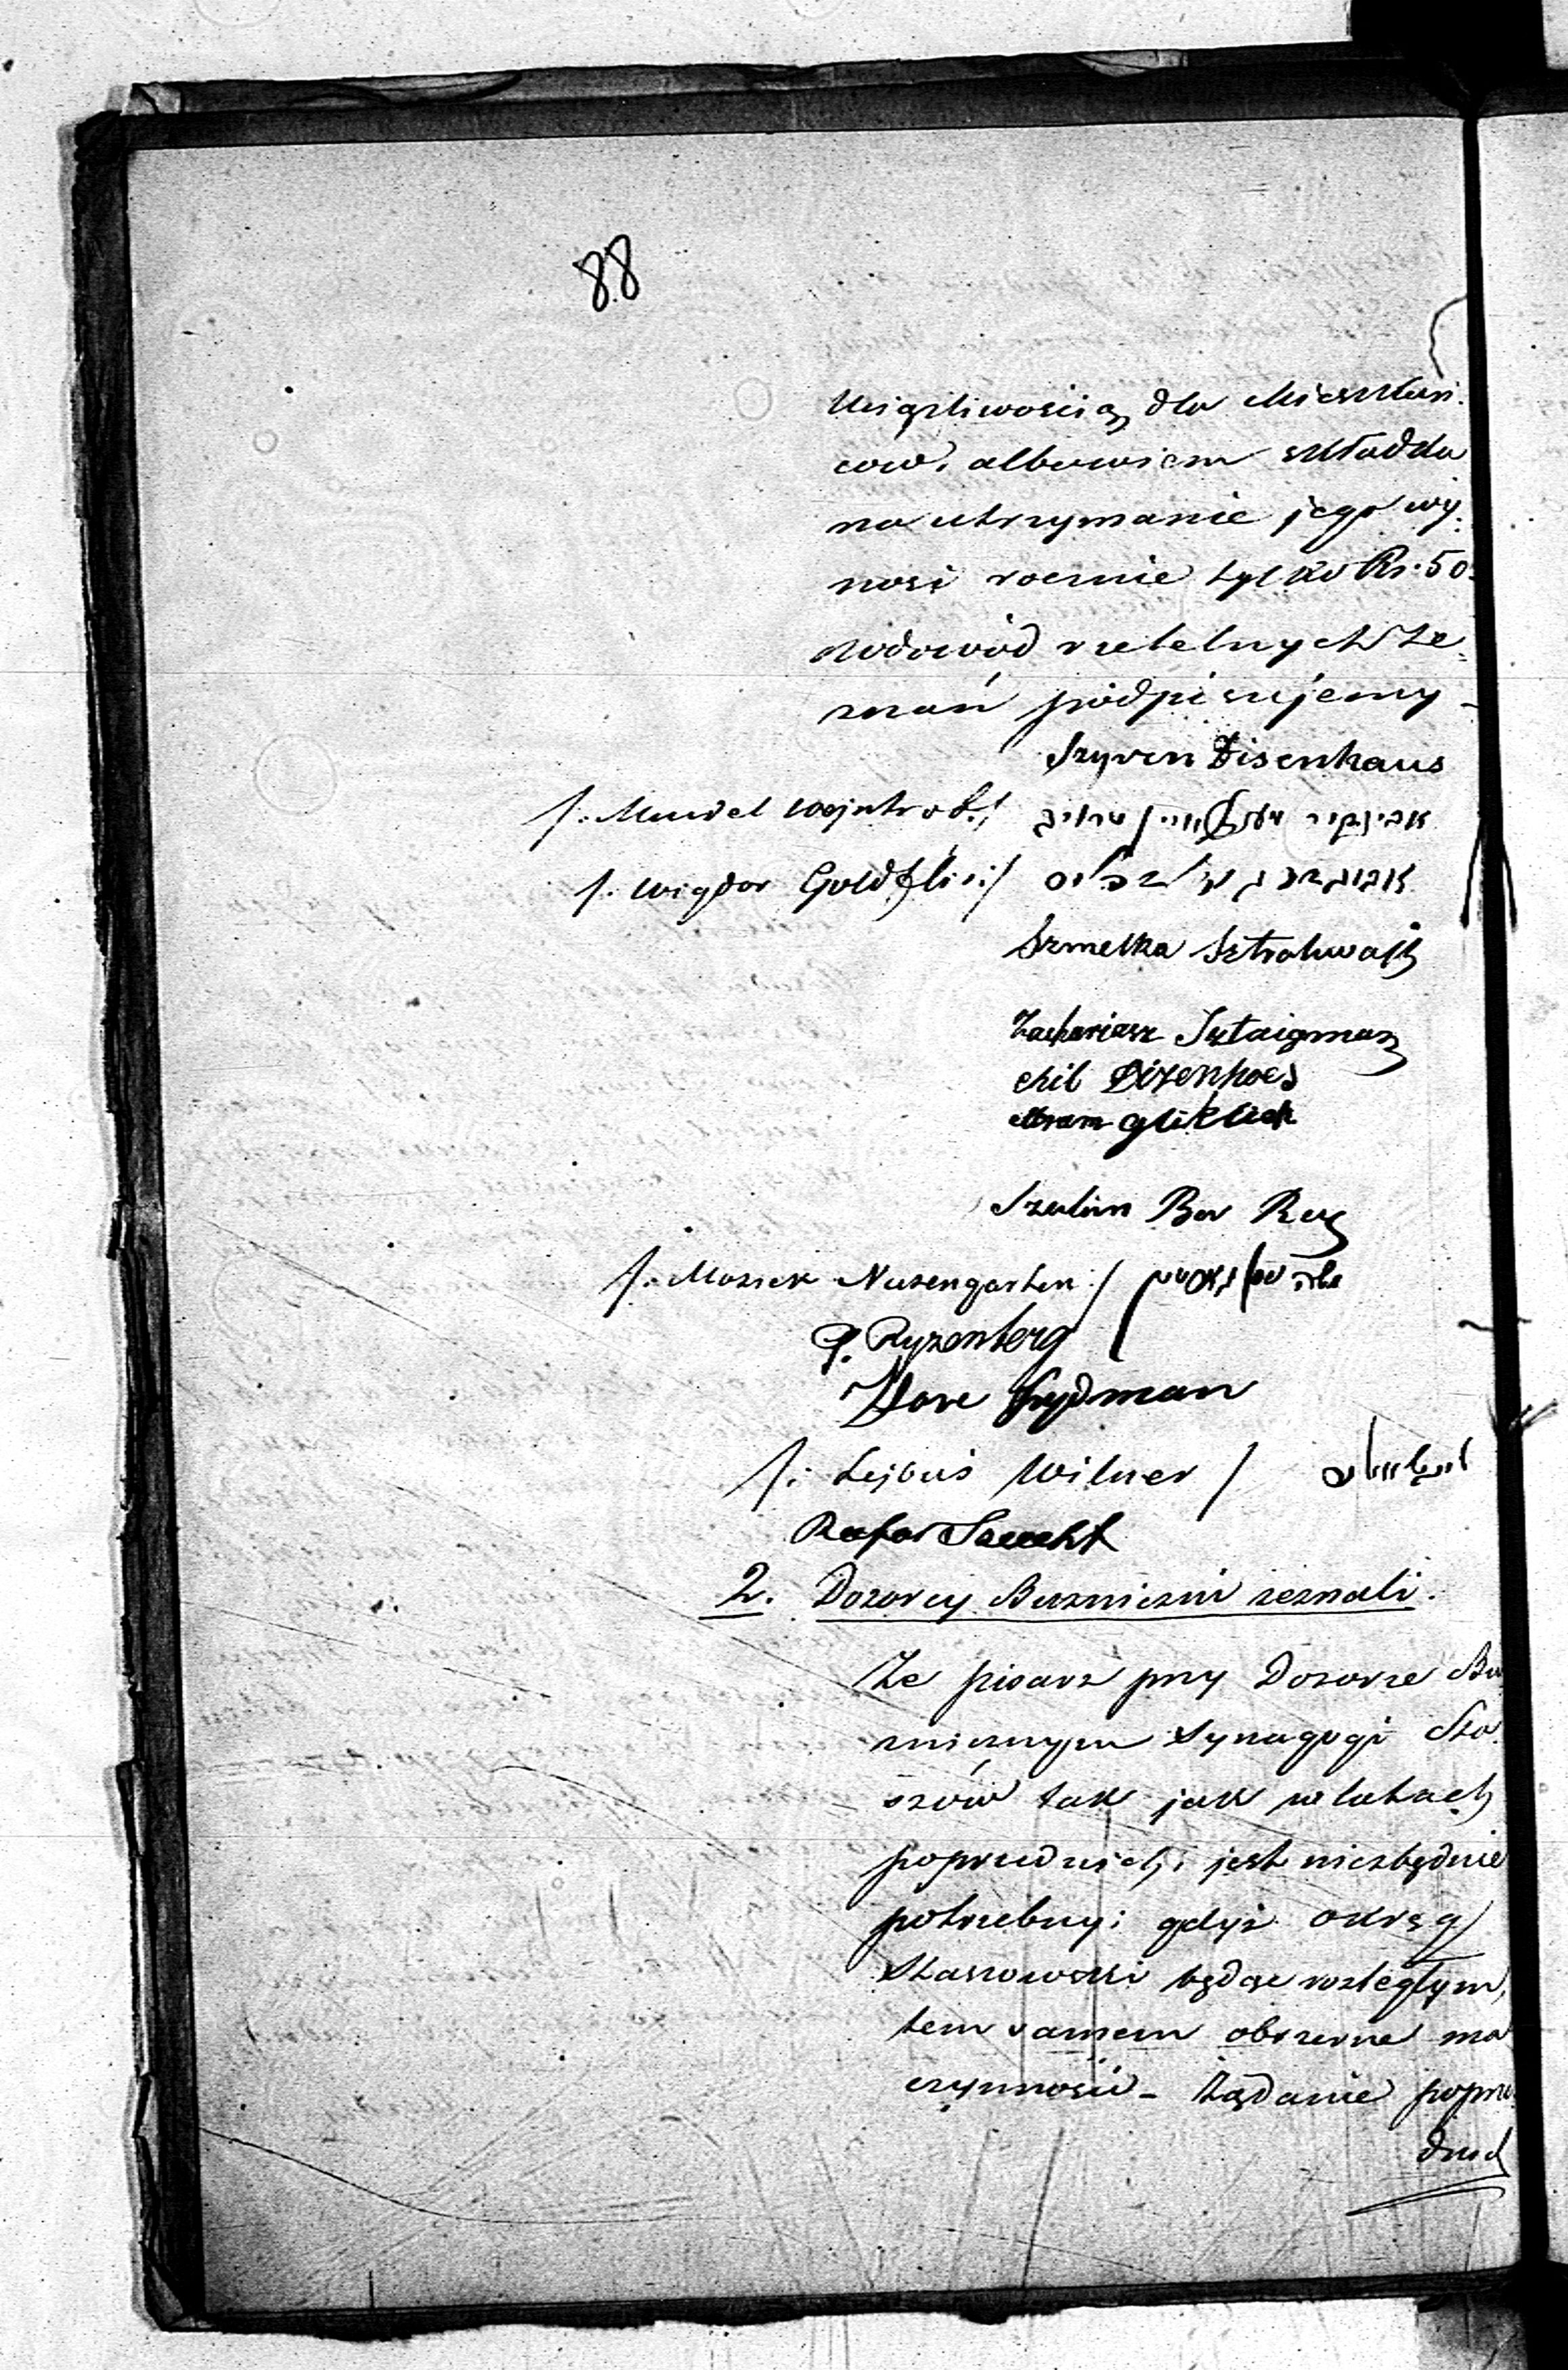 88
Uciążliwością dla Mieszkań:
ców, albowiem składka
na utrzymanie jego wy:
nosi rocznie tylko Rs. 50.
Na dowód rzetelnych ze:
znań podpisujemy -
Szyven Dizenhaus
/: Mendel Wajntrob :/
/: Wigdor Goldflis :/
Szmelka Sztrohwajs
Zachariasz Sztaigman
Chil Dizenhoes
Abram Gliklich
Szulim Ber
/: Moszek Nusengarten :/
P. Ryzenberg
Frydman
/: Lejbuś Wilner /
2. Dozorcy Bużniczni zeznali.
Że pisarz przy Dozorze Bu
żnicznym Synagogi Sta
szów tak jak w latach
poprzednich, jest niezbędnie
potrzebny; gdyż okręg
Staszowski będąc rozległym,
tem samem obszerne ma
czynności - Żądanie poprze
dnich